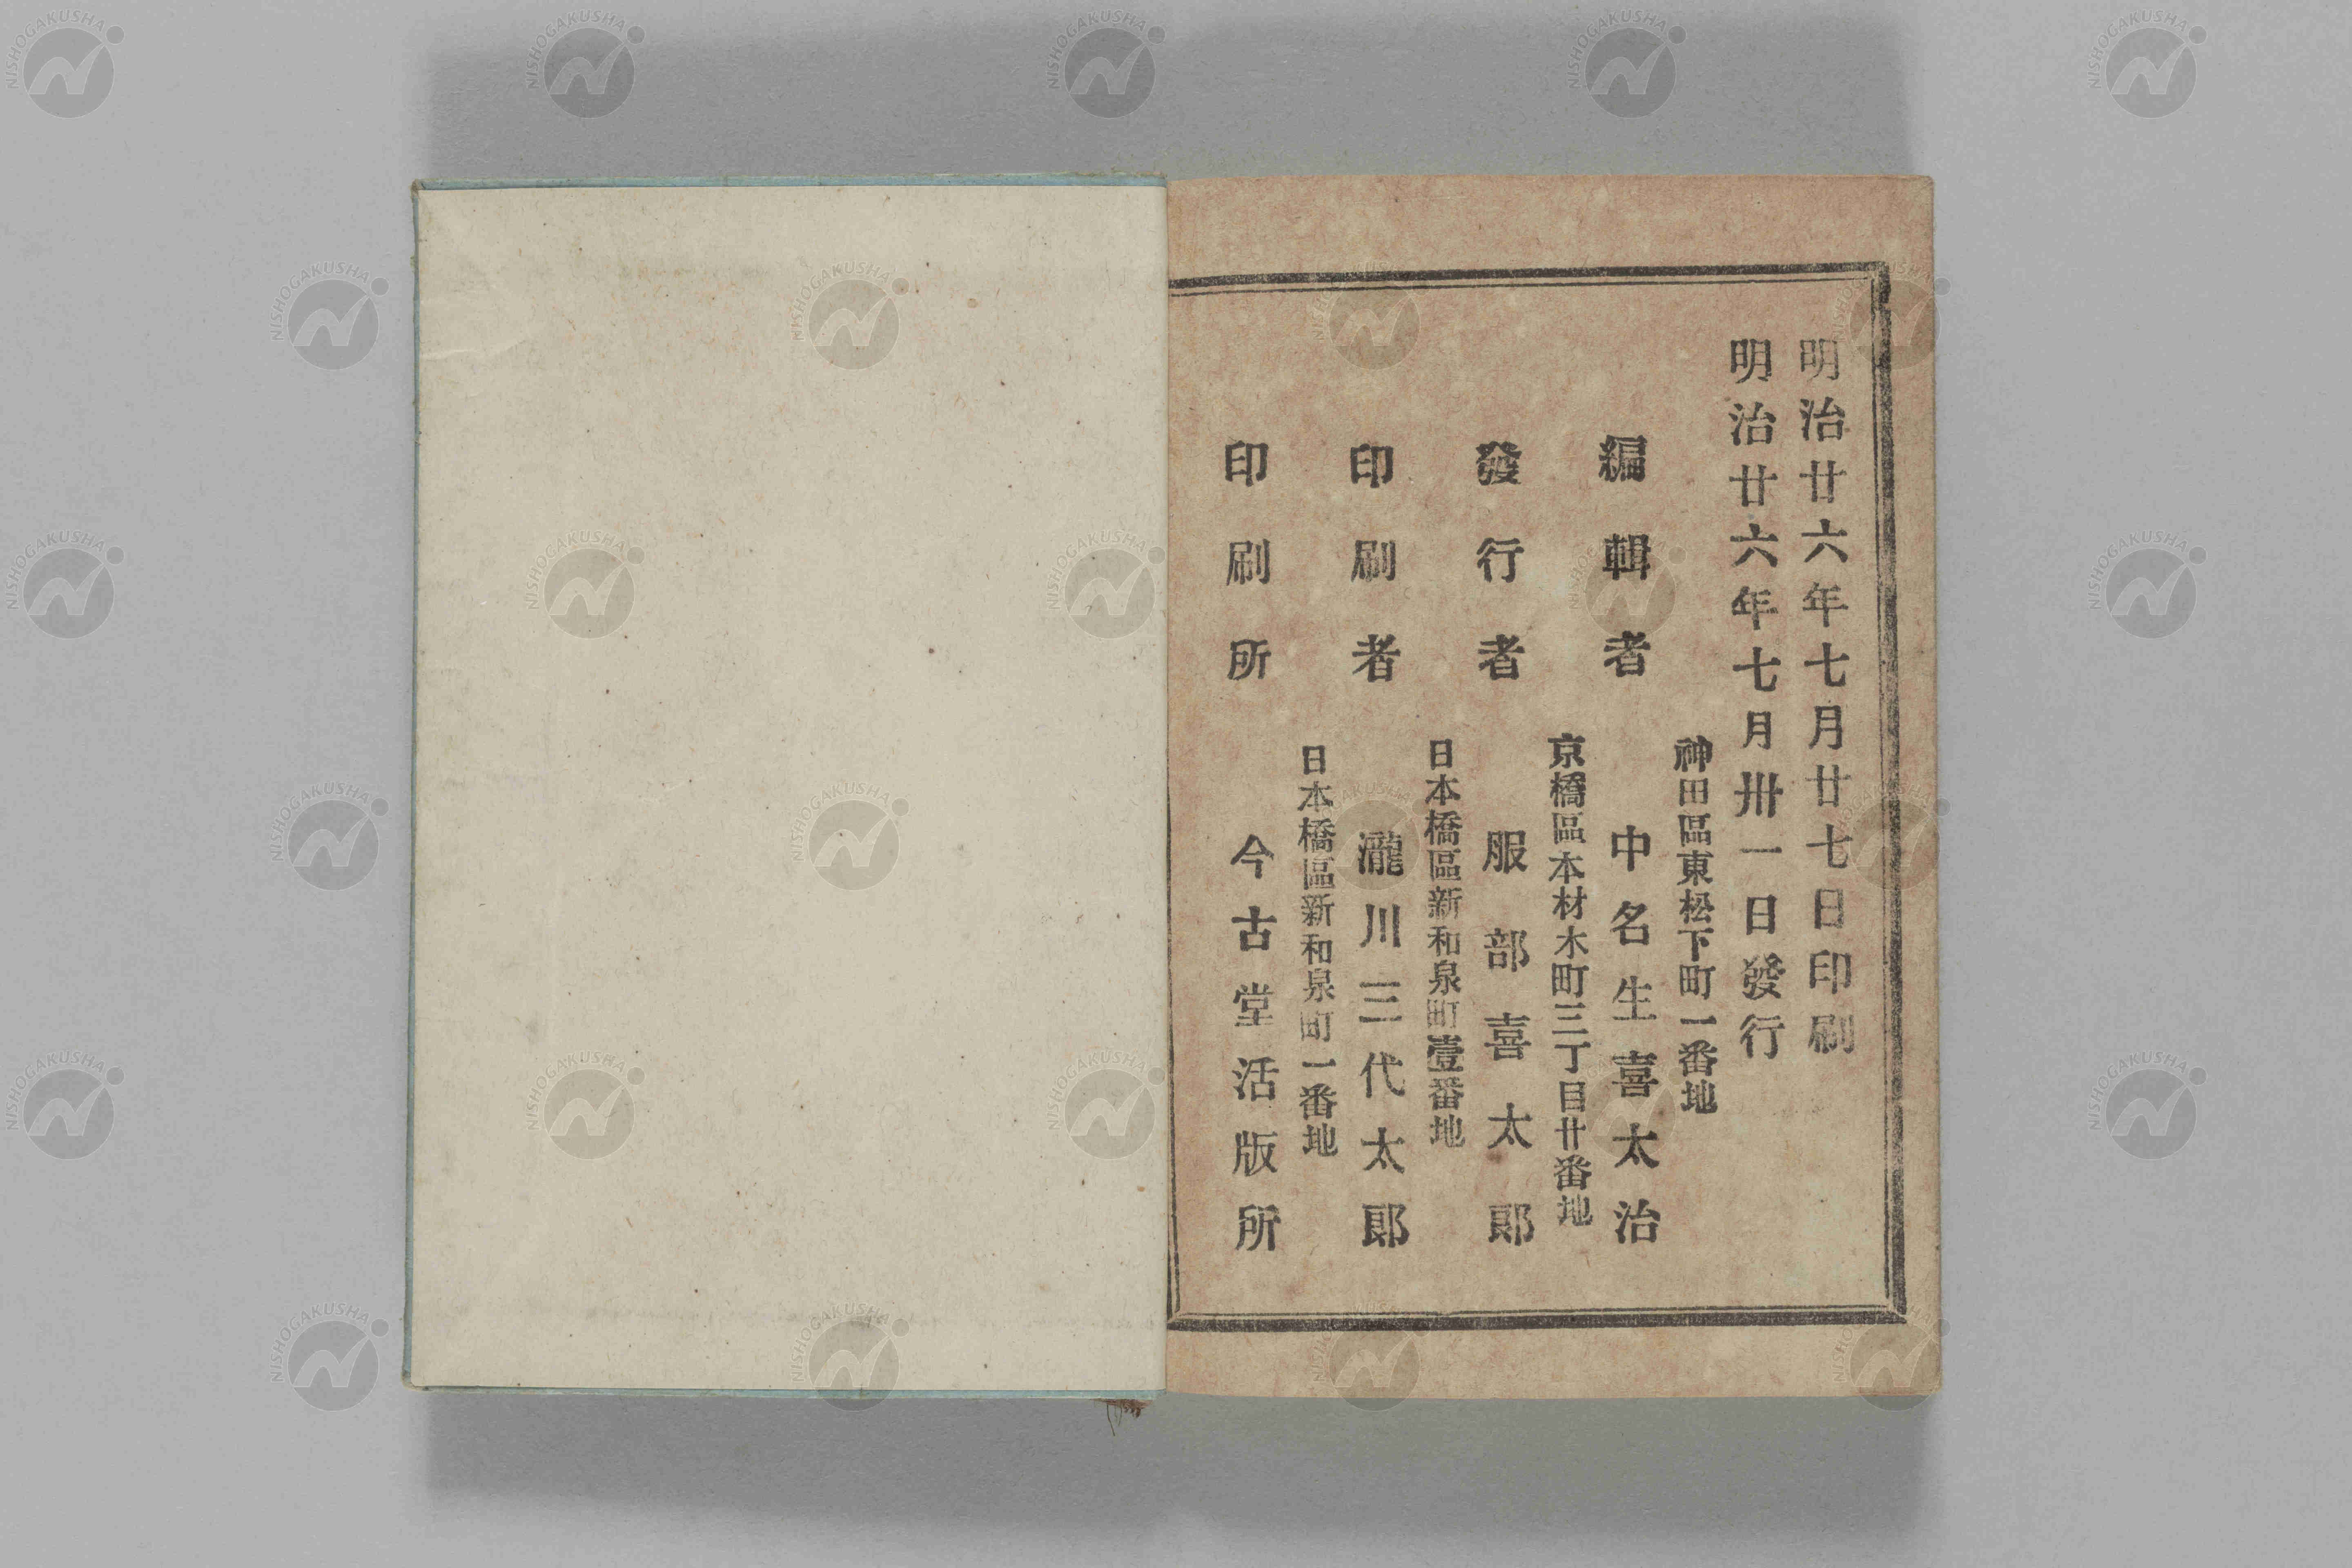 明治廿六年七月廿七日印刷
明治廿六年七月卅一日發行
神田區東松下町一番地
編輯者 中名生喜太治
京橋區本材木町三丁目廿番地
發行者 服部喜太郎
日本橋區新和泉町壹番地
印刷者 瀧川三代太郎
日本橋區新和泉町一番地
印刷所 今古堂活版所
NISHOGAKUSHA